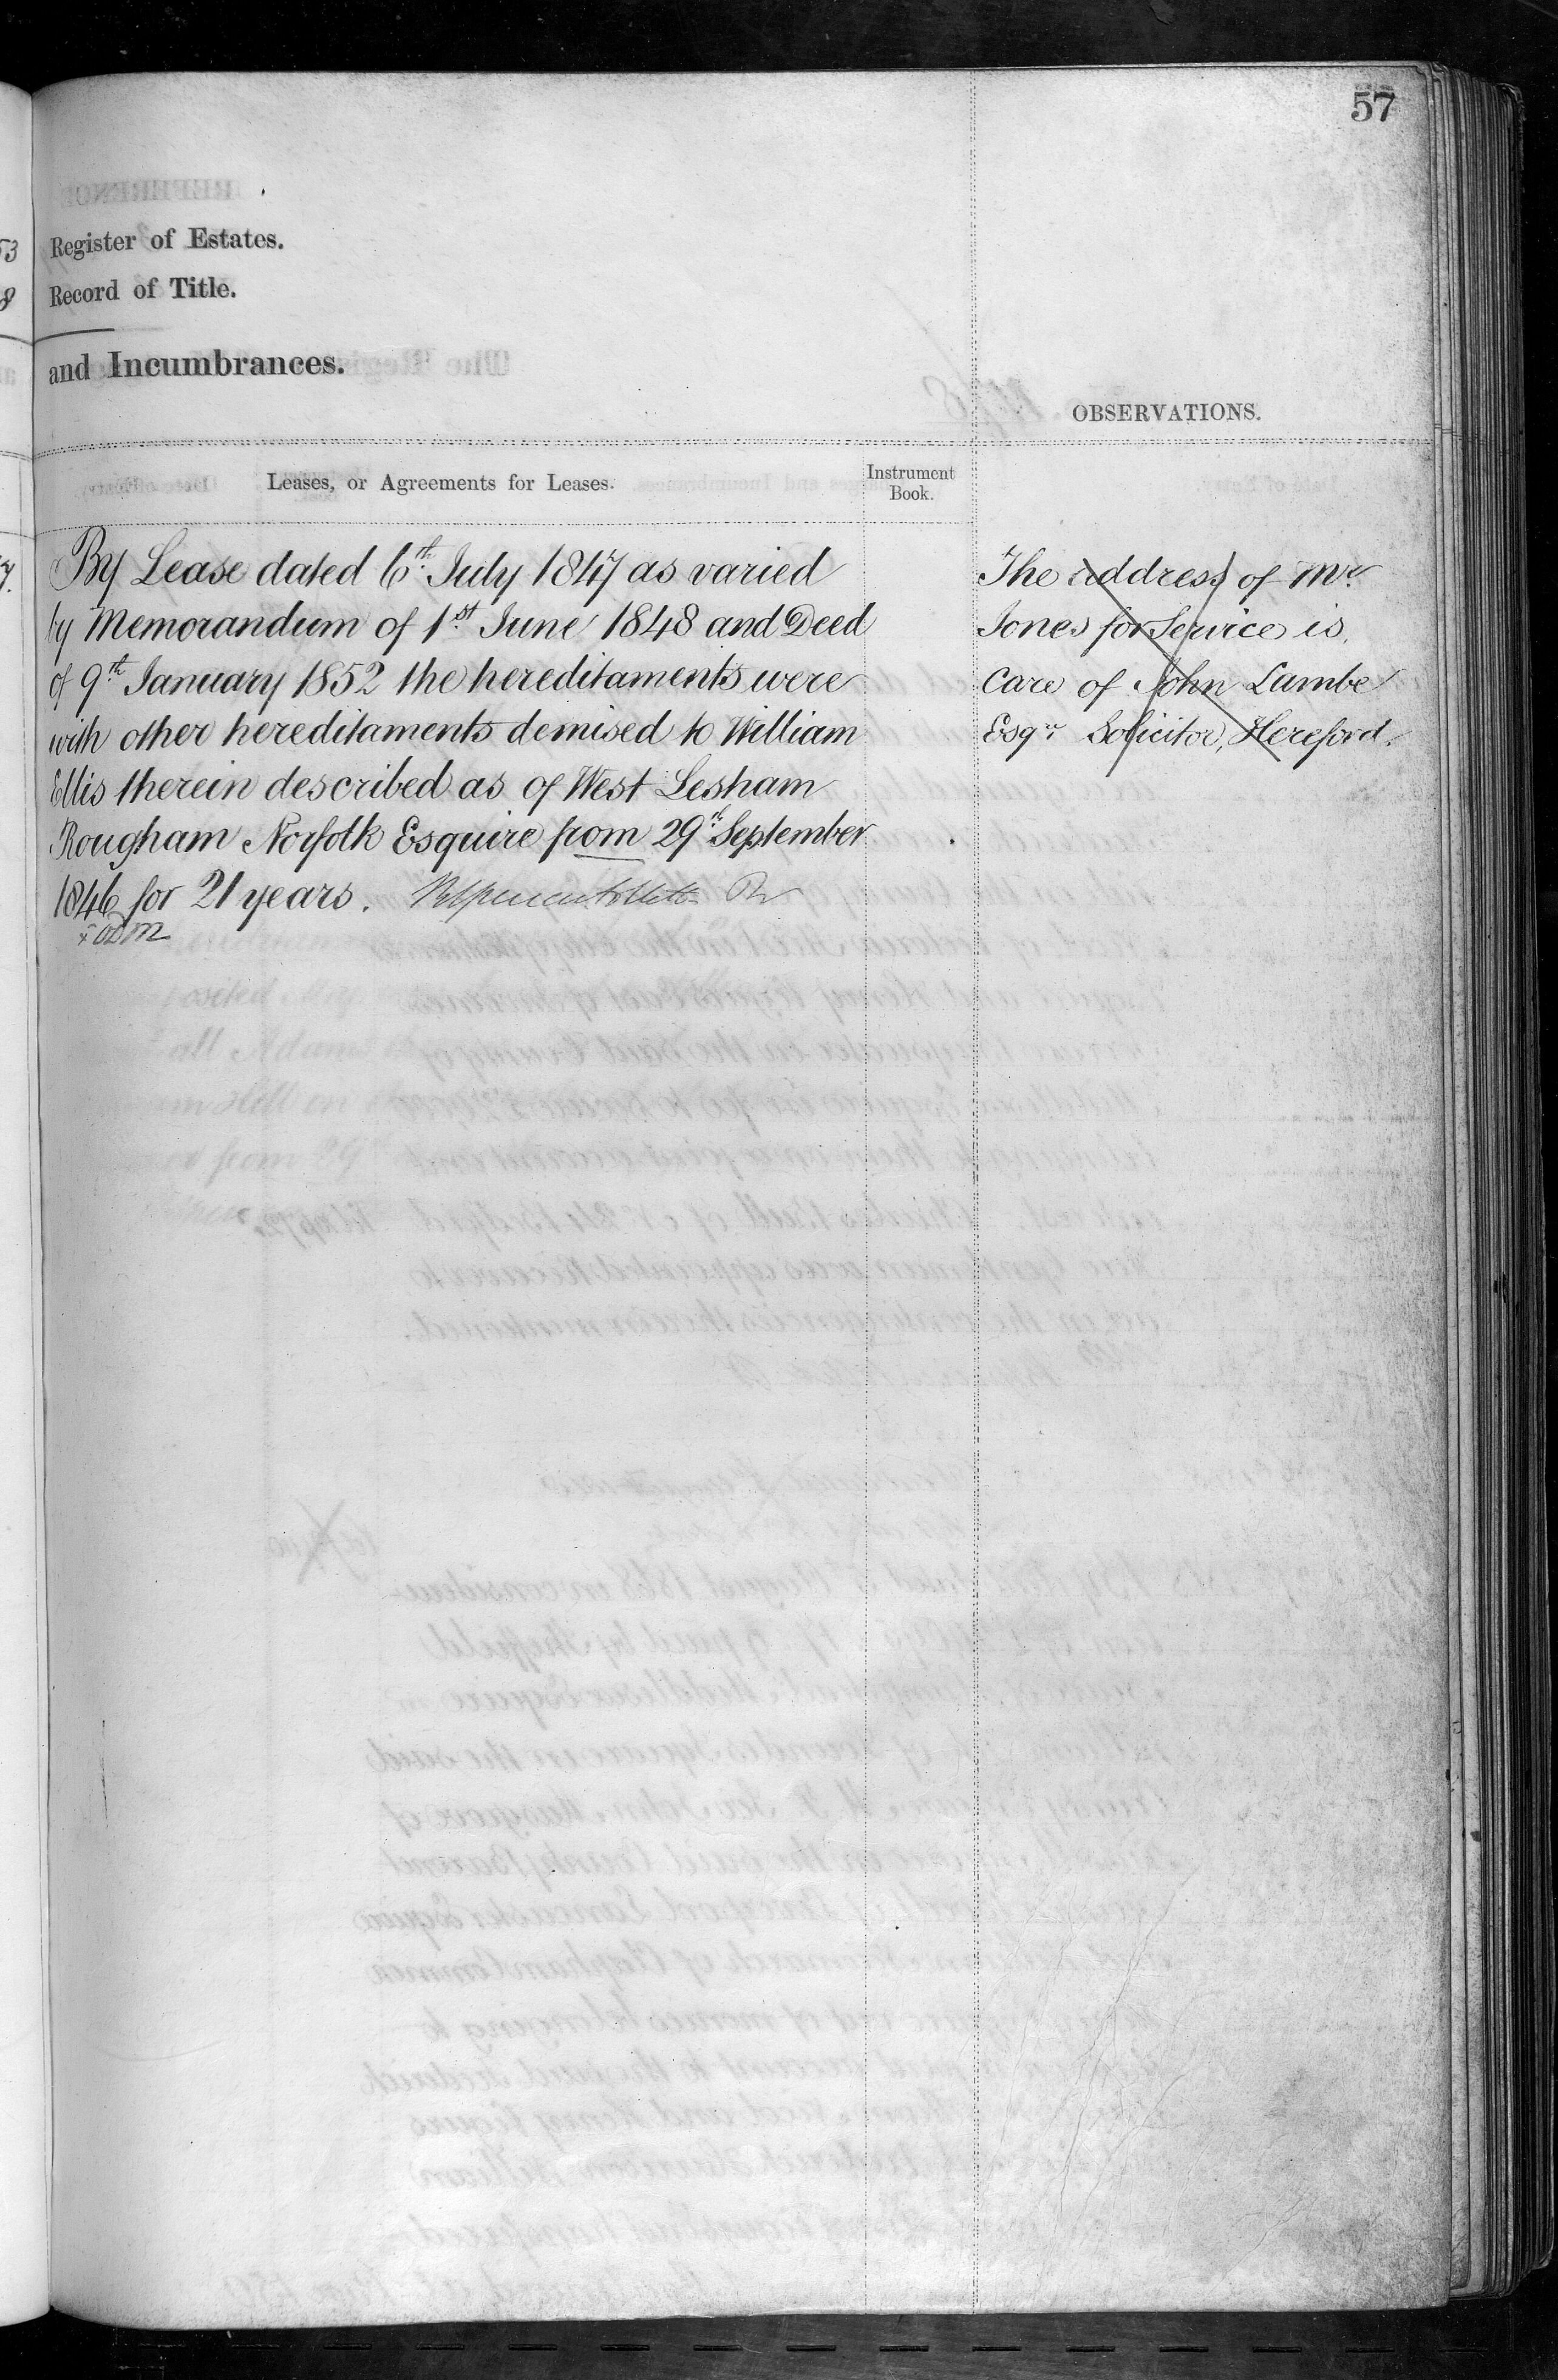 57
Register of Estates.
Record of Title.
and Incumbrances.
OBSERVATIONS.
Leases, or Agreements for Leases.
Instrument
Book.
By Lease dated 6th. July 1847 as varied
by Memorandum of 1st. June 1848 and Deed
of 9th January 1852 the hereditaments were
with other hereditaments demised to William
Ellis therein described as of West Lesham
Rougham Norfolk Esquire from 29th September
1846 for 21 years.
The address of Mr.
Jones for Service is
Care of John Lambe
Esqre Solicitor, Hereford.